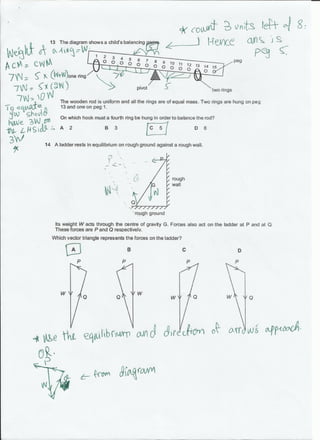 * count 3 units left of 8.
Hence ans is
peg 5.
13 The diagram shows a child's balancing game.
Weight of a ring = W
1 2 3 4 5 6 7 8 9 10 11 12 13 14 15
peg
ACM = CWM
one ring
pivot
two rings
7W = 5 x (2W)
7W = 10W
The wooden rod is uniform and all the rings are of equal mass. Two rings are hung on peg
13 and one on peg 1.
To equate
7W should
have 3W on
the LHSide
3W
*
On which hook must a fourth ring be hung in order to balance the rod?
A 2 B 3 C 5 D 6
14 A ladder rests in equilibrium on rough ground against a rough wall.
P
rough
wall
G
W
W
Q
rough ground
Its weight W acts through the centre of gravity G. Forces also act on the ladder at P and at Q.
These forces are P and Q respectively.
Which vector triangle represents the forces on the ladder?
A B C D
P P P P
W Q Q W W Q W Q
* Use the equilibrium and direction of arrows approach.
OR.
W
← from diagram